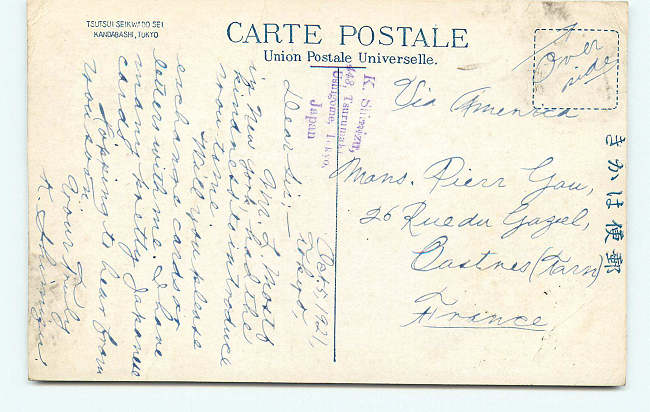 TSUTSUI SEIKWADO SEI
KANDABASHI, TOKYO
CARTE POSTALE
Union Postale Universelle.
Over
side
K. Shimizu,
448, Tsurumaki
Ushigome, Tokyo,
Japan
Via America
Mons. Pierr Gau,
26 Rue du Gazel,
Castres (Tarn)
France
きかは便郵
Oct. 5, 1921,
Tokyo,
Dear Sir;—
Mr. L. Most
in New York, had the
kindness to introduce
your name.
Will you please
exchange cards or
letters with me. I have
many pretty Japanese
cards.
Hopping to hear from
you soon.
Your Truly
K. Shimizu